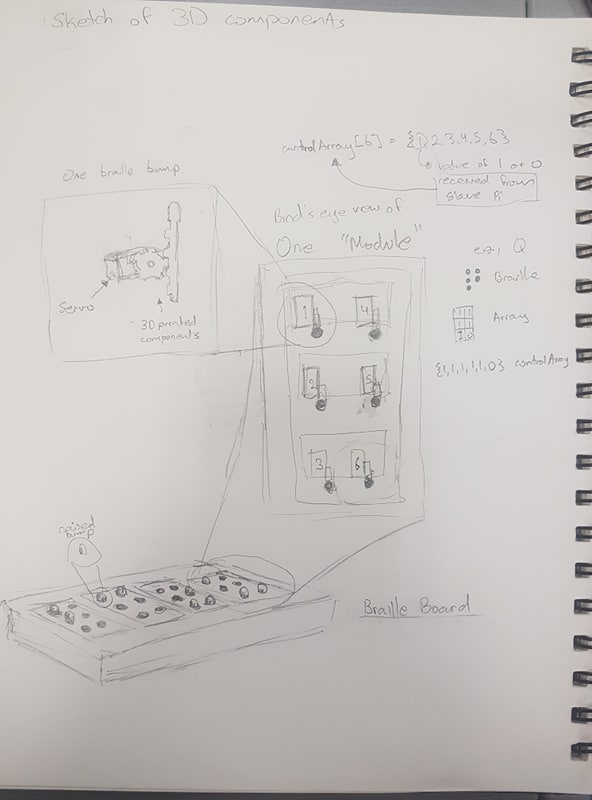 Sketch of 3D components
controlArray[6] = {1,2,3,4,5,6}
value of 1 or 0
received from
Slave Pi
One braille bump
Servo
3D printed
components
Bird's eye view of
One "Module"
1 4
2 5
3 6
ex, Q
Braille
Array
1 1
1 1
1 0
{1,1,1,1,1,0} controlArray
raised
bump
Braille Board